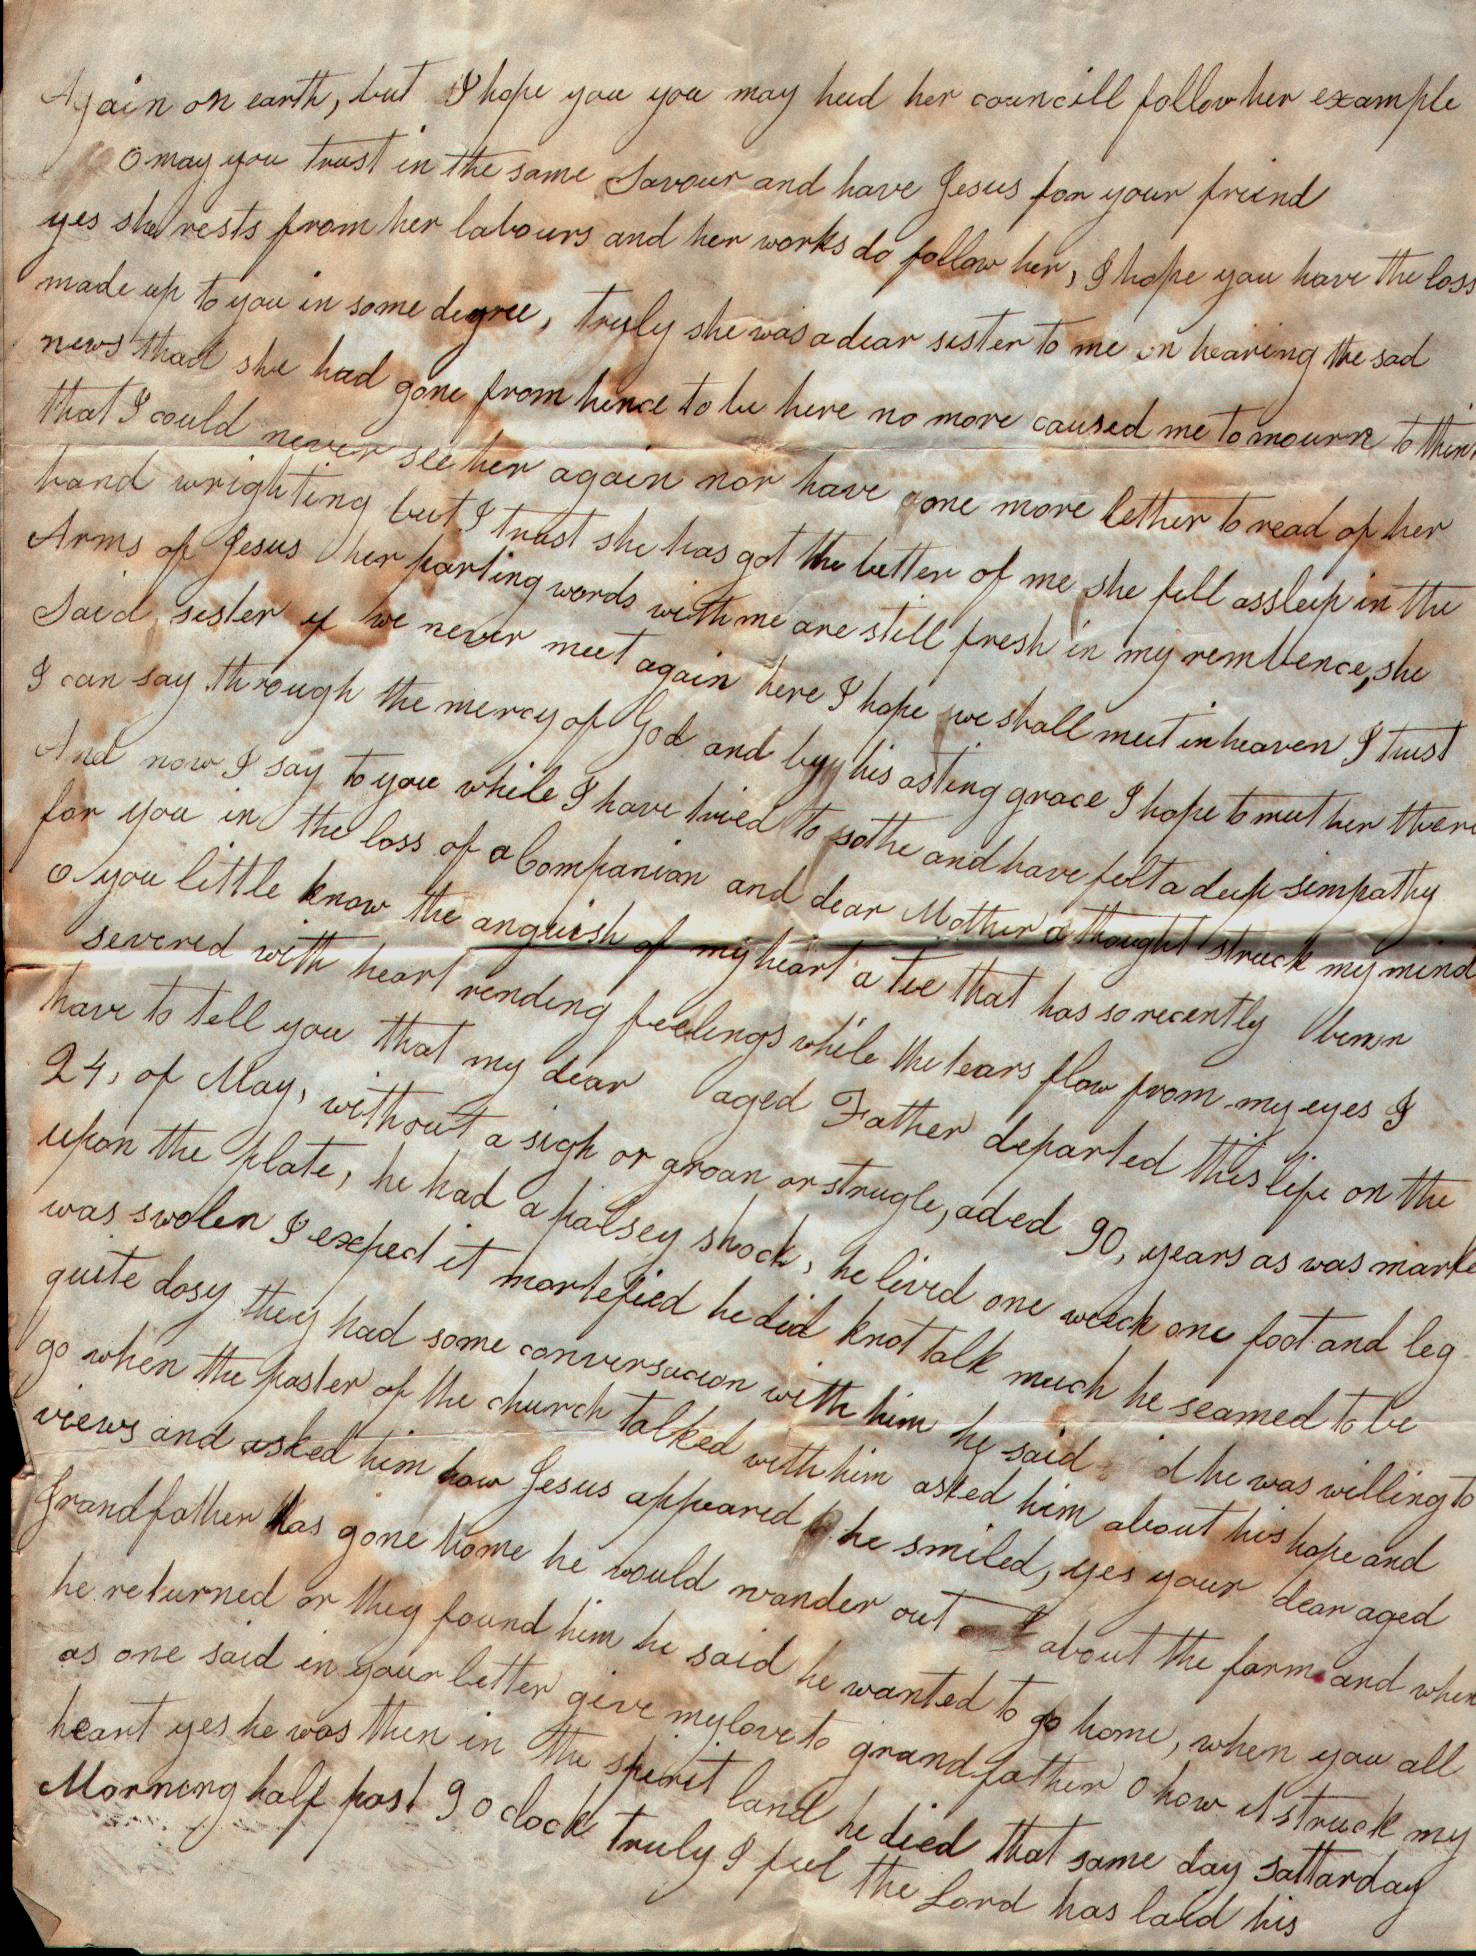 Again on earth, but I hope you you may heed her councill follow her example
O may you trust in the same Savour and have Jesus for your friend
yes she rests from her labours and her works do follow her, I hope you have the loss
made up to you in some degree, truly she was a dear sister to me on hearing the sad
news that she had gone from hence to be here no more caused me to mourn to think
that I could never see her again nor have one more lether to read of her
hand wrighting but I trust she has got the better of me she fell assleep in the
Arms of Jesus her parting words with me are still fresh in my rembence, she
Said, sister if we never meet again here I hope we shall meet in heaven I trust
I can say through the mercy of God and by his asting grace I hope to meet her there
And now I say to you while I have tried to sothe and have felt a deep simpathy
for you in the loss of a Companion and dear Mother a thought struck my mind
o you little know the anguish of my heart a tie that has so recently been
severed with heart rending feelings while the tears flow from my eyes I
have to tell you that my dear aged Father departed this life on the
24, of May, without a sigh or groan or strugle, aded 90, years as was marke
upon the plate, he had a palsey shock, he lived one week one foot and leg
was swolen I expect it mortefied he did knot talk much he seamed to be
quite dosy they had some conversacion with him he said he was willing to
go when the paster of the church talked with him asked him about his hope and
views and asked him how Jesus appeared he smiled, yes your dear aged
Grandfather has gone home he would wander out about the farm and when
he returned or they found him he said he wanted to go home, when you all
as one said in your letter give my love to grandfather O how it struck my
heart yes he was then in the spirit land he died that same day sattarday
Morning half past 9 o clock truly I feel the Lord has laid his